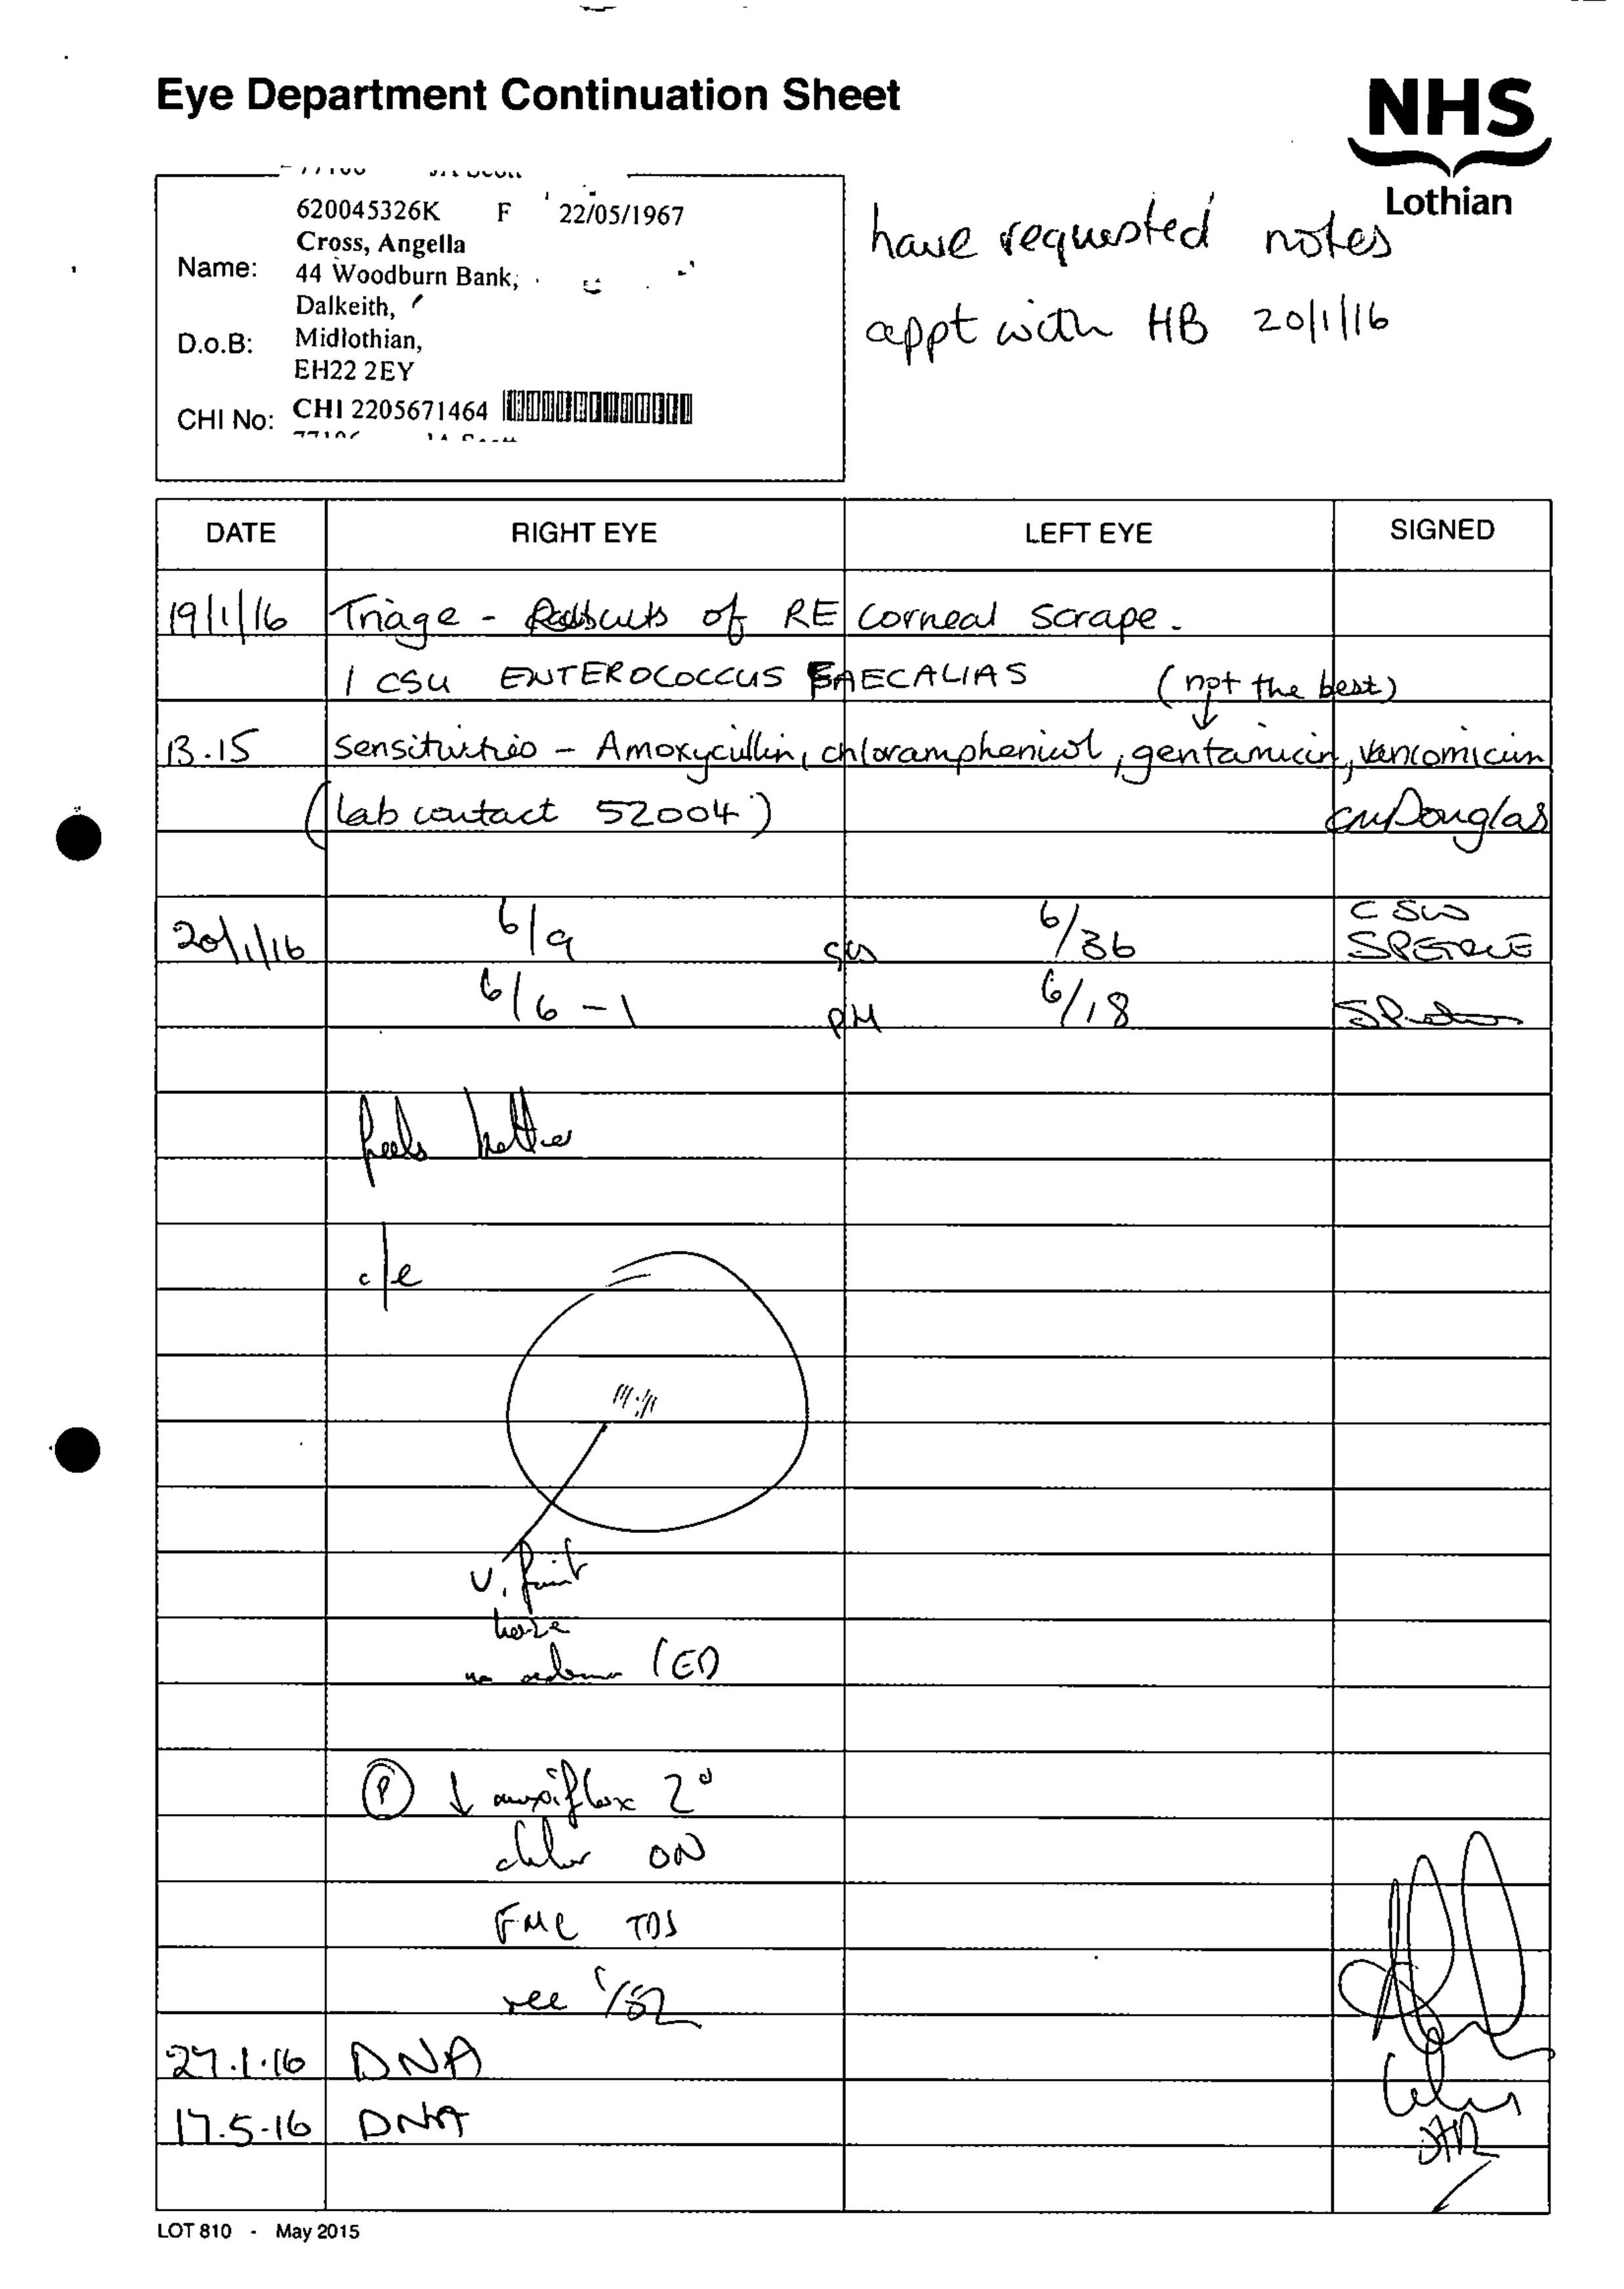 Eye Department Continuation Sheet
NHS
Lothian
620045326K F 22/05/1967
Cross, Angella
Name: 44 Woodburn Bank,
Dalkeith,
D.o.B: Midlothian,
EH22 2EY
CHI No: CHI 2205671464
have requested notes
appt with HB 20/1/16
DATE RIGHT EYE LEFT EYE SIGNED
19/1/16 Triage - Results of RE Corneal Scrape.
1 CSU ENTEROCOCCUS FAECALIAS (not the best)
13.15 Sensitivities - Amoxycillin, chloramphenicol, gentamicin, vancomicin
(lab contact 52004) Douglas
20/1/16 6/9 6/36 CSW
6/6 -1 PH 6/18
feels better
c/e
v. faint
haze
no oedema
P ↓ moxiflox 2°
chlor ON
FML TDS
see 1/52
27.1.16 DNA
17.5.16 DNA
LOT 810 - May 2015